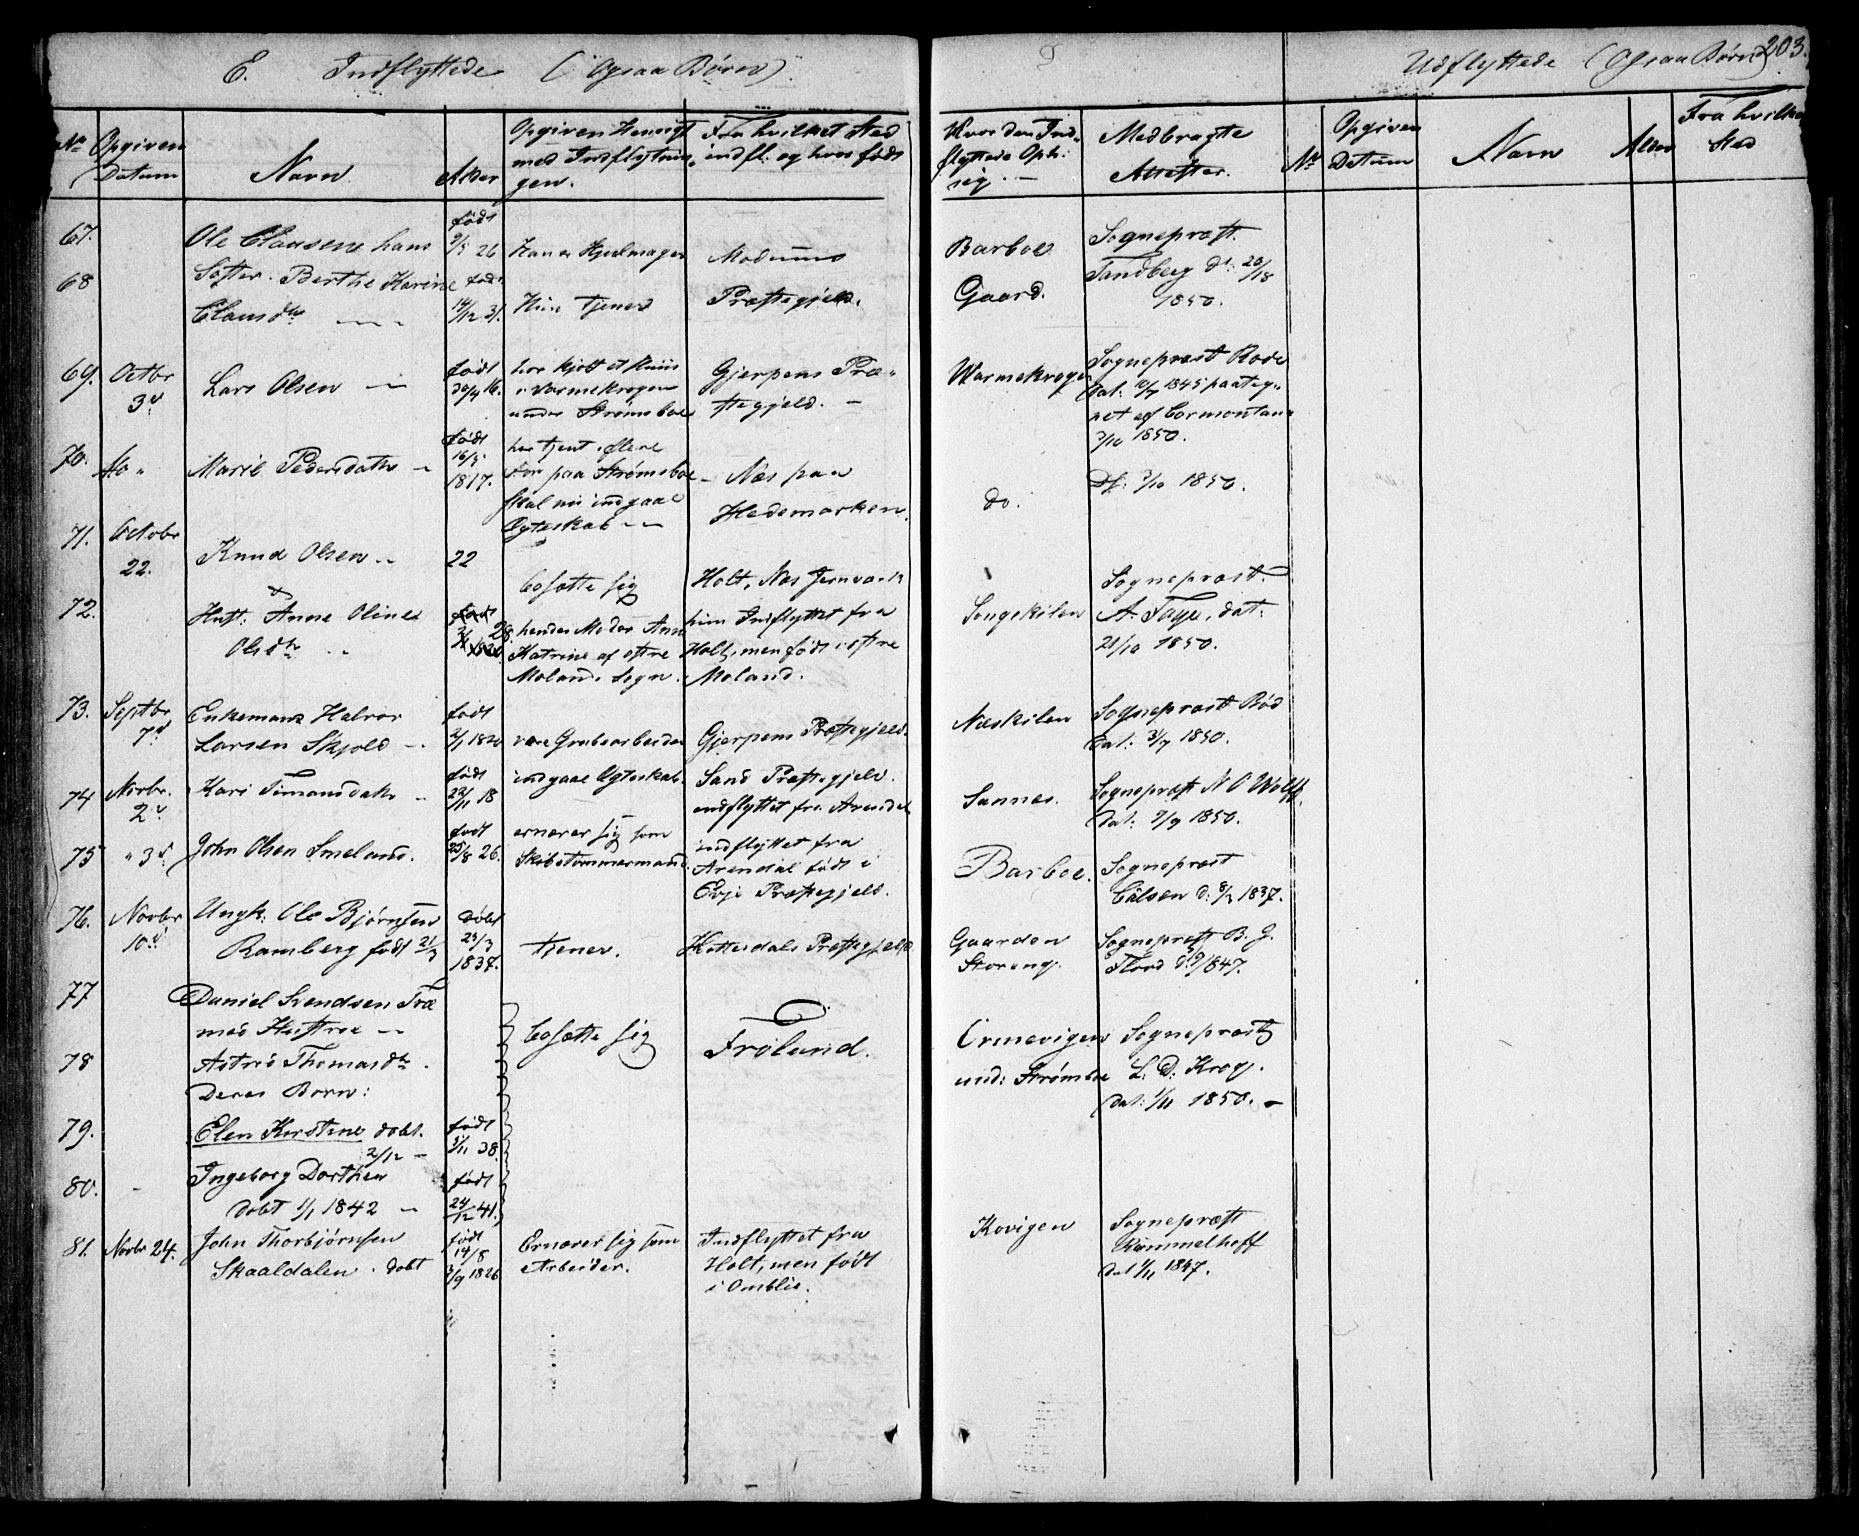 E. Indflyttede (Ogsaa Børn)
Udflyttede (Ogsaa Børn) 203.
No Opgiven Datum
Navn
Alder
Opgiven Hensigt
med Indflytnin-
gen.
Fra hvilket Sted
indfl: og hvor født
Hvor den Ind-
flyttede Oph:
sig.
Medbragte
Attester.
No
Opgiven
Datum
Navn
Alder
Fra hvilket
Sted
67. Ole Clausen hans
født
9/5 26
Han er Hjulmager
Modums
Barboe
Sognepræst.
68 Søster. Berthe Karine
født
Tandberg dt: 20/18
Clausdtr
14/12 31.
Hun tjener
Præstegjeld.
Gaard.
1850.
69. Octbr
3d
Lars Olsen
født
30/4 16.
har kjøbt et Huus
i Varmekrogen
under Strømsboe
Gjerpens Præ-
stegjeld.
Warmekrogen
Sognepræst Rode
Dat: 10/7 1845 paateg-
net af Cormontan
2/10 1850.
70. do
Marie Pedersdatter
født
16/5
1817.
har tjent i flere
Aar paa Strømsboe
skal nu indgaae
Ægteskab
Næs paa
Hedemarken.
do.
Df: 2/10 1850.
71. Octobr
22.
Knud Olsen
22
bosætte sig
Holt, Næs Jernværk
Songekilen
Sognepræst.
72.
& Hust: Anne Oline
Olsdtr
født
28.
hendes Moder Ann
Katrine af østre
Molands Sogn.
hun Indflyttet fra
Holt, men født i østre
Moland.
A. Faye, dat:
21/10 1850.
73. Septbr
7d
Enkemand Halvor
Larsen Skjold
født
2/1 1820
være Grubearbeider
Gjerpens Præstegjeld.
Næskilen
Sognepræst Rød
Dat: 3/7 1850.
74 Novbr.
2d
Kari Simonsdatter
født
22/11 18
indgaae Ægteskab.
Sand Præstegjeld.
indflyttet fra Arendal
Sannæs.
Sognepræst N O Wolff.
Dat: 7/9 1850.
75 " 3d.
John Olsen Smeland.
født
25/8 26.
ernærer sig som
Skibstømmermand.
indflyttet fra
Arendal født i
Evje Præstegjeld.
Barboe.
Sognepræst
d: 8/3 1837.
76. Novbr
10d
Ungk: Ole Bjørnsen
Ramberg født 21/3
døbt
25/3
1837.
tjener.
Hitterdals Præstegjeld
Gaarden
Storeng.
Sognepræst B. G.
Flood 1847.
77
Daniel Svendsen Træ
med Hustroe
bosætte sig
Frøland.
Ormevigen
und: Strømsboe
Sognepræst
L: D: Krog.
dat: 1/11 1850.
78
Astrid Thomasdtr.
Deres Børn:
79.
Elen Kirstine døbt.
2/12
født
5/11 38.
80.
Ingeborg Dorthea
døbt 1/1 1842
født
24/12 41.
81. Novbr 24.
John Thorbjørnsen
Skaaldalen. døbt
født
14/8
3/9 1826
Ernærer sig som
Arbeider.
Indflyttet fra
Holt, men født
i Omblie.
Kovigen
Sognepræst
Rømmelhoff
dat 1/11 1847.